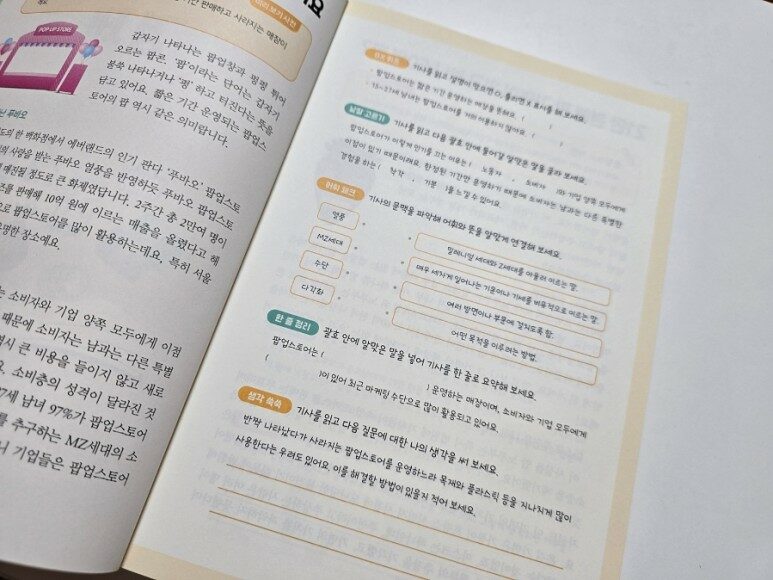 미리 보기 사전
판매하고 사라지는 매장이
POP UP STORE
갑자기 나타나는 팝업창과 펑펑 튀어
오르는 팝콘. '팝'이라는 단어는 갑자기
불쑥 나타나거나 '펑' 하고 터진다는 뜻을
담고 있어요. 짧은 기간 운영되는 팝업스
토어의 팝 역시 같은 의미랍니다.
푸바오
한 백화점에서 에버랜드의 인기 판다 '푸바오' 팝업스토
사랑을 받는 푸바오 열풍을 반영하듯 푸바오 팝업스토
매진될 정도로 큰 화제였답니다. 2주간 총 2만여 명이
판매해 10억 원에 이르는 매출을 올렸다고 해
으로 팝업스토어를 많이 활용하는데요, 특히 서울
유명한 장소예요.
는 소비자와 기업 양쪽 모두에게 이점
때문에 소비자는 남과는 다른 특별
역시 큰 비용을 들이지 않고 새로
. 소비층의 성격이 달라진 것
7세 남녀 97%가 팝업스토어
를 추구하는 MZ세대의 소
니 기업들은 팝업스토어
O× 퀴즈 기사를 읽고 설명이 맞으면 ○, 틀리면 × 표시를 해 보세요.
· 팝업스토어는 짧은 기간 운영하는 매장을 뜻해요. ( )
· 15~27세 남녀는 팝업스토어를 거의 이용하지 않아요. ( )
낱말 고르기 기사를 읽고 다음 괄호 안에 들어갈 알맞은 말을 골라 보세요.
팝업스토어가 이렇게 인기를 끄는 이유는 ( 노동자 , 소비자 )와 기업 양쪽 모두에게
이점이 있기 때문이래요. 한정된 기간만 운영하기 때문에 소비자는 남과는 다른 특별한
경험을 하는 ( 착각 , 기분 )을 느낄 수 있어요.
어휘 체크 기사의 문맥을 파악해 어휘와 뜻을 알맞게 연결해 보세요.
열풍 · · 밀레니얼 세대와 Z세대를 아울러 이르는 말.
MZ세대 · · 매우 세차게 일어나는 기운이나 기세를 비유적으로 이르는 말.
수단 · · 여러 방면이나 부문에 걸치도록 함.
다각화 · · 어떤 목적을 이루려는 방법.
한 줄 정리 괄호 안에 알맞은 말을 넣어 기사를 한 줄로 요약해 보세요.
팝업스토어는 ( ) 운영하는 매장이며, 소비자와 기업 모두에게
( )이 있어 최근 마케팅 수단으로 많이 활용되고 있어요.
생각 쑥쑥 기사를 읽고 다음 질문에 대한 나의 생각을 써 보세요.
반짝 나타났다가 사라지는 팝업스토어를 운영하느라 목재와 플라스틱 등을 지나치게 많이
사용한다는 우려도 있어요. 이를 해결할 방법이 있을지 적어 보세요.